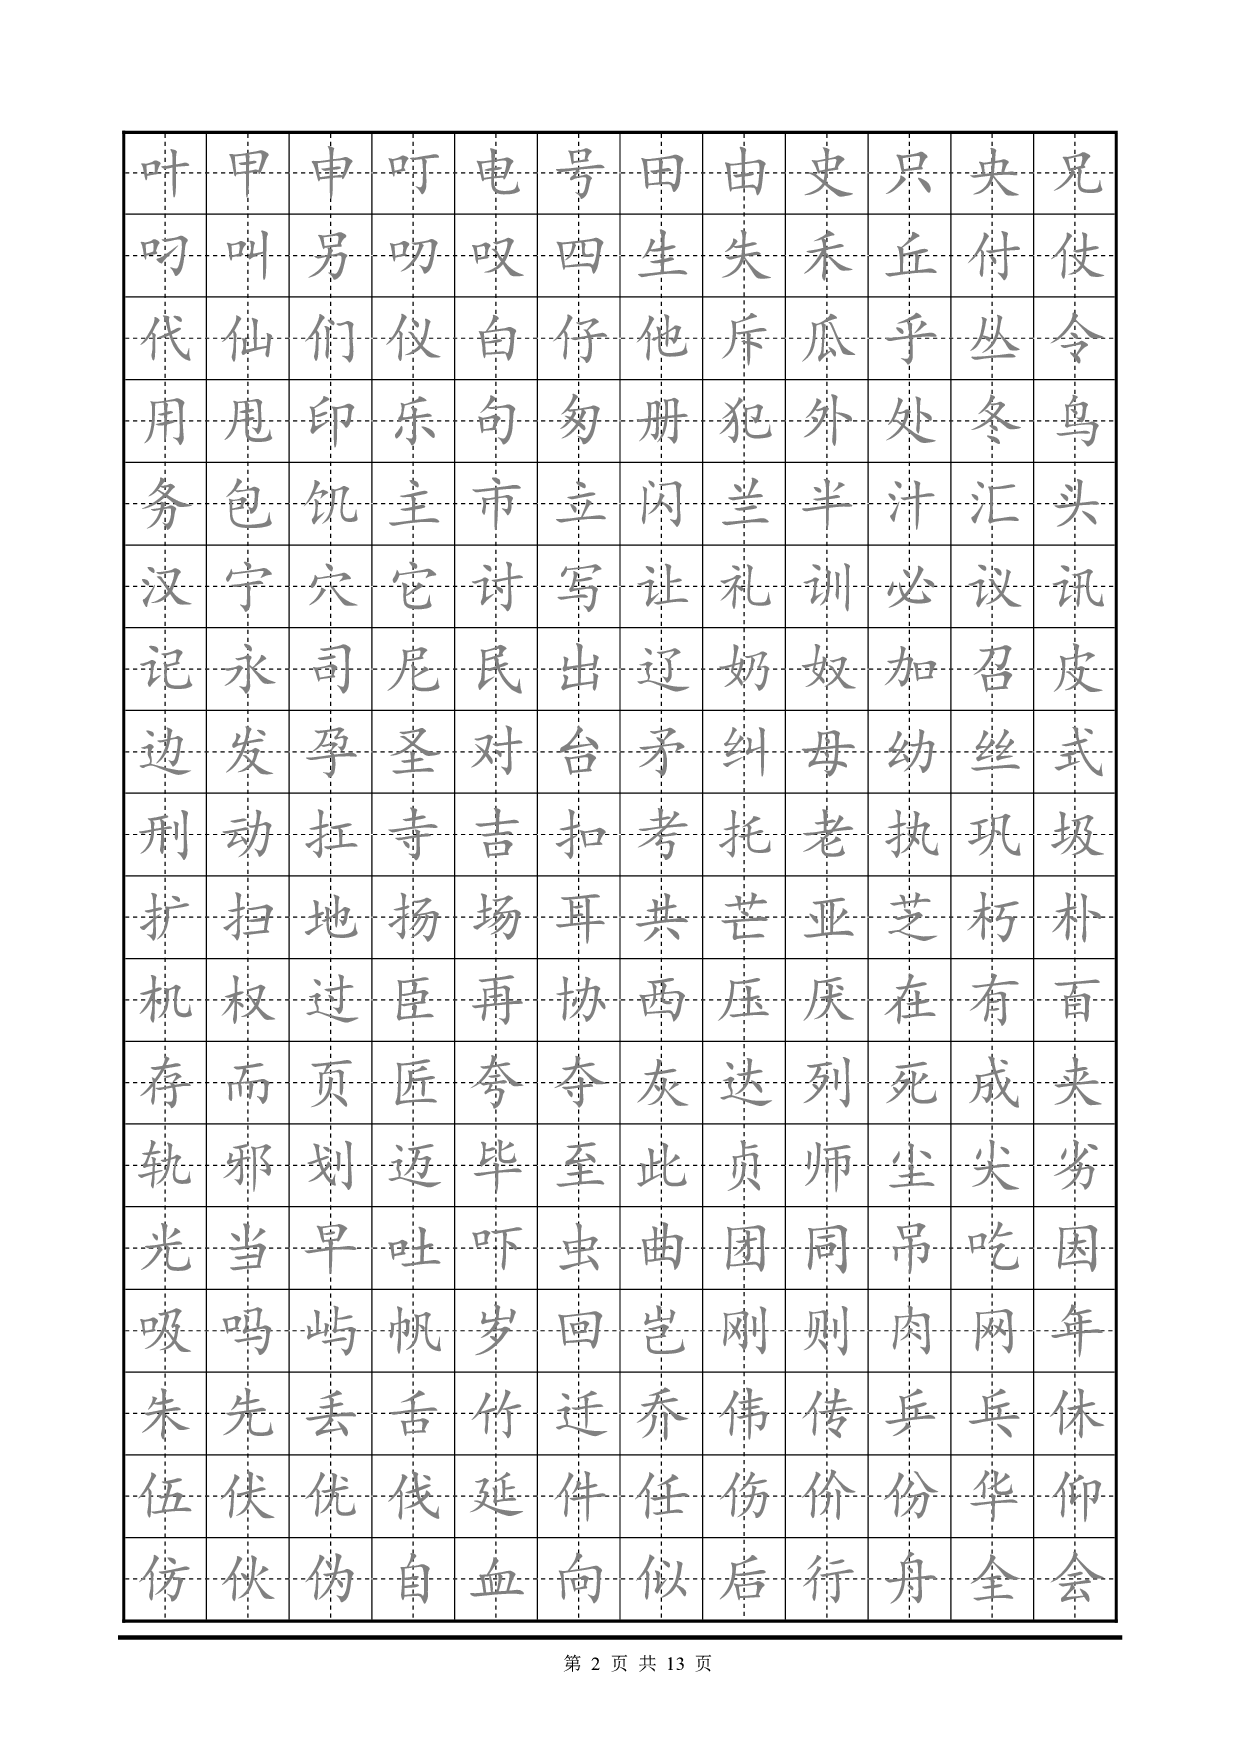 叶甲申叮电号田由史只央兄
叼叫另叨叹四生失禾丘付仗
代仙们仪白仔他斥瓜乎丛令
用甩印乐句匆册犯外处冬鸟
务包饥主市立闪兰半汁汇头
汉宁穴它讨写让礼训必议讯
记永司尼民出辽奶奴加召皮
边发孕圣对台矛纠母幼丝式
刑动扛寺吉扣考托老执巩圾
扩扫地扬场耳共芒亚芝朽朴
机权过臣再协西压厌在有百
存而页匠夸夺灰达列死成夹
轨邪划迈毕至此贞师尘尖劣
光当早吐吓虫曲团同吊吃因
吸吗屿帆岁回岂刚则肉网年
朱先丢舌竹迁乔伟传乒乓休
伍伏优伐延件任伤价份华仰
仿伙伪自血向似后行舟全会
第 2 页 共 13 页